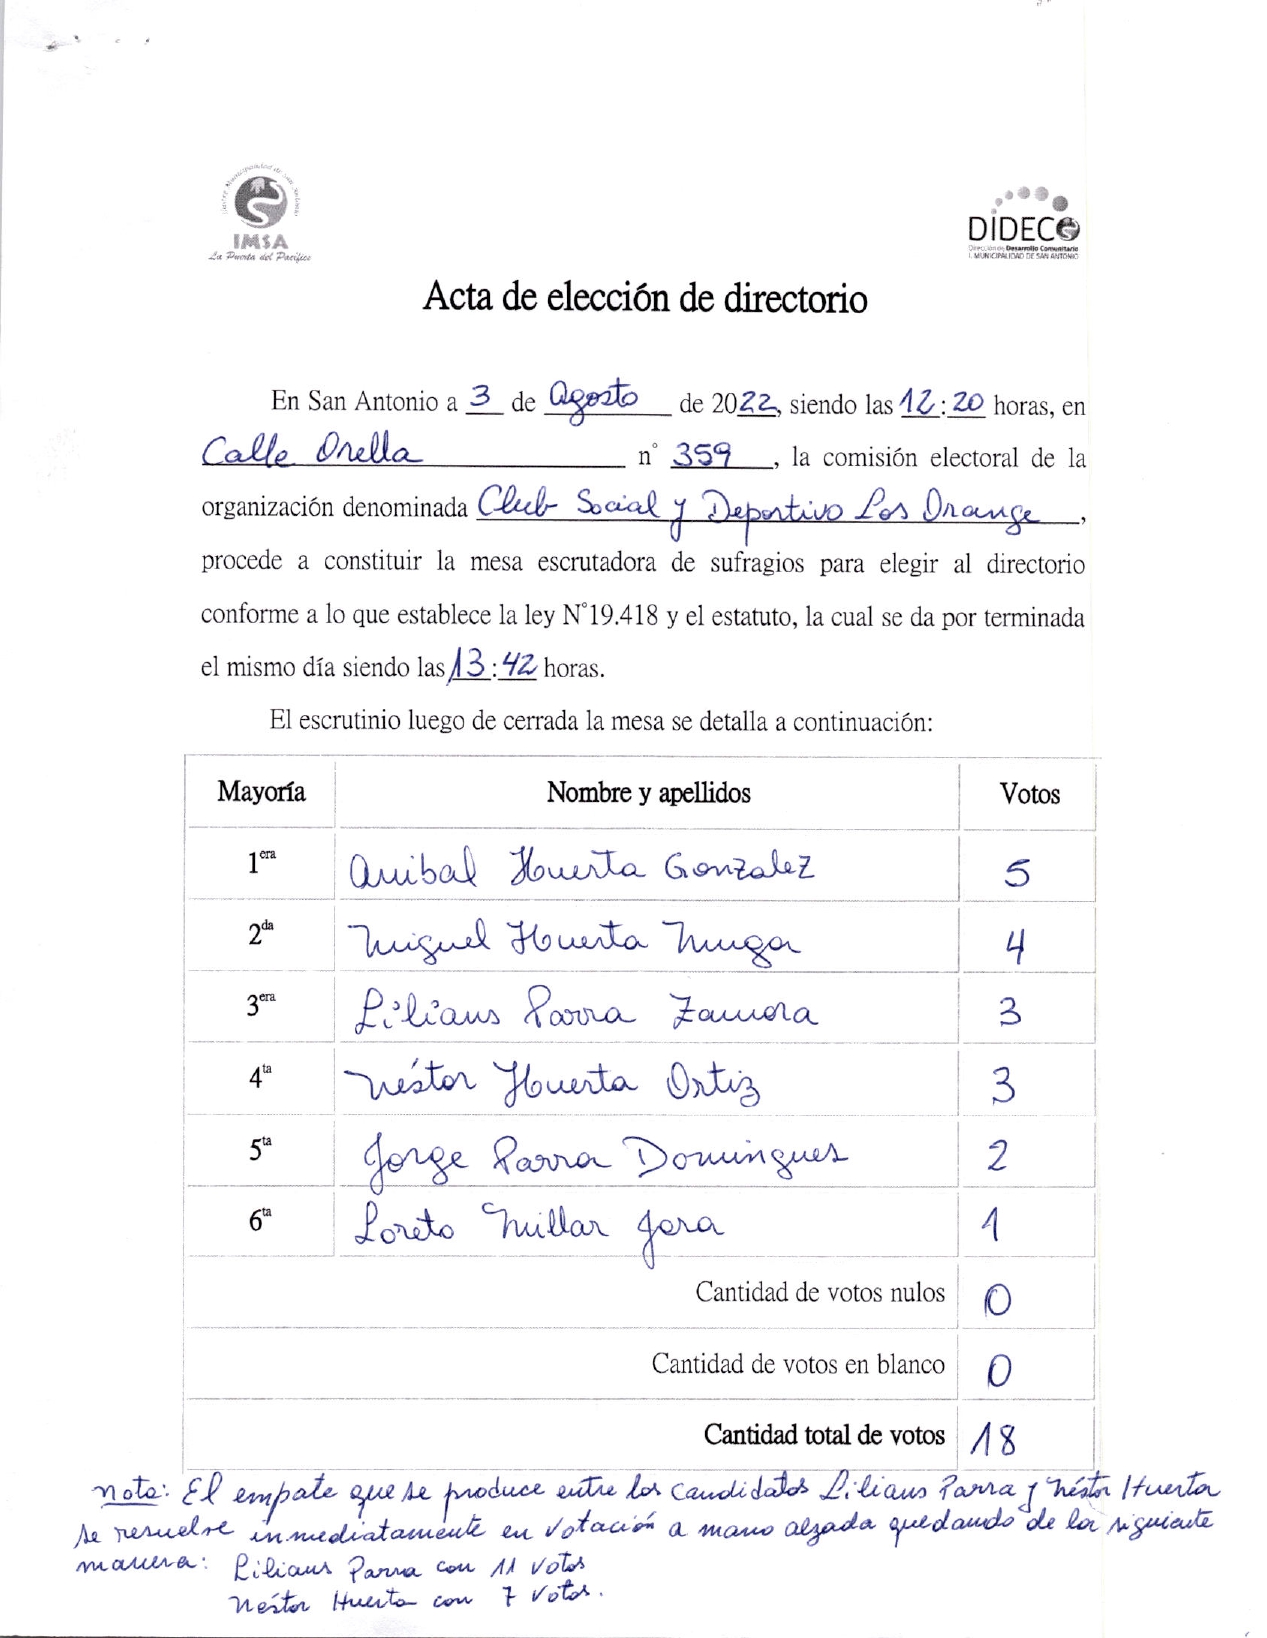 IMSA
La Puerta del Pacífico
DIDECO
Dirección de Desarrollo Comunitario
I. MUNICIPALIDAD DE SAN ANTONIO
Acta de elección de directorio
En San Antonio a 3 de Agosto de 2022, siendo las 12:20 horas, en
Calle Orella n° 359, la comisión electoral de la
organización denominada Club Social y Deportivo Los Orange,
procede a constituir la mesa escrutadora de sufragios para elegir al directorio
conforme a lo que establece la ley N°19.418 y el estatuto, la cual se da por terminada
el mismo día siendo las 13:42 horas.
El escrutinio luego de cerrada la mesa se detalla a continuación:
Mayoría Nombre y apellidos Votos
1era Anibal Huerta Gonzalez 5
2da Miguel Huerta Muga 4
3era Lilians Parra Zamora 3
4ta Néstor Huerta Ortiz 3
5ta Jorge Parra Domingues 2
6ta Loreto Millar Jara 1
Cantidad de votos nulos 0
Cantidad de votos en blanco 0
Cantidad total de votos 18
nota: El empate que se produce entre los candidatos Lilians Parra y Néstor Huerta
se resuelve inmediatamente en votación a mano alzada quedando de la siguiente
manera: Lilians Parra con 11 votos
Néstor Huerta con 7 votos.